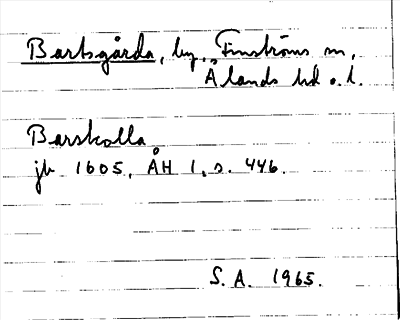 Bartsgårda, by, Finströms sn,
Ålands hd o. l.
Barskolla
jb 1605, ÅH 1, s. 446.
S. A. 1965.